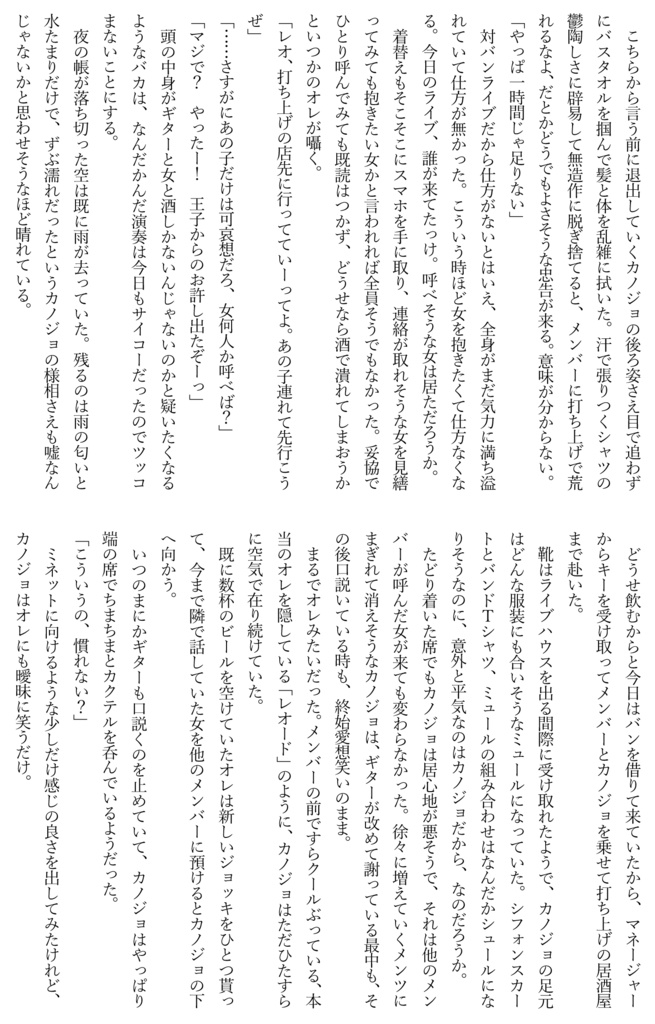 こちらから言う前に退出していくカノジョの後ろ姿さえ目で追わず
にバスタオルを掴んで髪と体を乱雑に拭いた。汗で張りつくシャツの
鬱陶しさに辟易して無造作に脱ぎ捨てると、メンバーに打ち上げで荒
れるなよ、だとかどうでもよさそうな忠告が来る。意味が分からない。
「やっぱ一時間じゃ足りない」
　対バンライブだから仕方がないとはいえ、全身がまだ気力に満ち溢
れていて仕方が無かった。こういう時ほど女を抱きたくて仕方なくな
る。今日のライブ、誰が来てたっけ。呼べそうな女は居ただろうか。
　着替えもそこそこにスマホを手に取り、連絡が取れそうな女を見繕
ってみても抱きたい女かと言われれば全員そうでもなかった。妥協で
ひとり呼んでみても既読はつかず、どうせなら酒で潰れてしまおうか
といつかのオレが囁く。
「レオ、打ち上げの店先に行ってていーってよ。あの子連れて先行こう
ぜ」
「……さすがにあの子だけは可哀想だろ、女何人か呼べば？」
「マジで？　やったー！　王子からのお許し出たぞーっ」
　頭の中身がギターと女と酒しかないんじゃないのかと疑いたくなる
ようなバカは、なんだかんだ演奏は今日もサイコーだったのでツッコ
まないことにする。
　夜の帳が落ち切った空は既に雨が去っていた。残るのは雨の匂いと
水たまりだけで、ずぶ濡れだったというカノジョの様相さえも嘘なん
じゃないかと思わせそうなほど晴れている。
　どうせ飲むからと今日はバンを借りて来ていたから、マネージャー
からキーを受け取ってメンバーとカノジョを乗せて打ち上げの居酒屋
まで赴いた。
　靴はライブハウスを出る間際に受け取れたようで、カノジョの足元
はどんな服装にも合いそうなミュールになっていた。シフォンスカー
トとバンドTシャツ、ミュールの組み合わせはなんだかシュールにな
りそうなのに、意外と平気なのはカノジョだから、なのだろうか。
　たどり着いた席でもカノジョは居心地が悪そうで、それは他のメン
バーが呼んだ女が来ても変わらなかった。徐々に増えていくメンツに
まぎれて消えそうなカノジョは、ギターが改めて謝っている最中も、そ
の後口説いている時も、終始愛想笑いのまま。
　まるでオレみたいだった。メンバーの前ですらクールぶっている、本
当のオレを隠している「レオード」のように、カノジョはただひたすら
に空気で在り続けていた。
　既に数杯のビールを空けていたオレは新しいジョッキをひとつ貰っ
て、今まで隣で話していた女を他のメンバーに預けるとカノジョの下
へ向かう。
　いつのまにかギターも口説くのを止めていて、カノジョはやっぱり
端の席でちまちまとカクテルを呑んでいるようだった。
「こういうの、慣れない？」
　ミネットに向けるような少しだけ感じの良さを出してみたけれど、
カノジョはオレにも曖昧に笑うだけ。